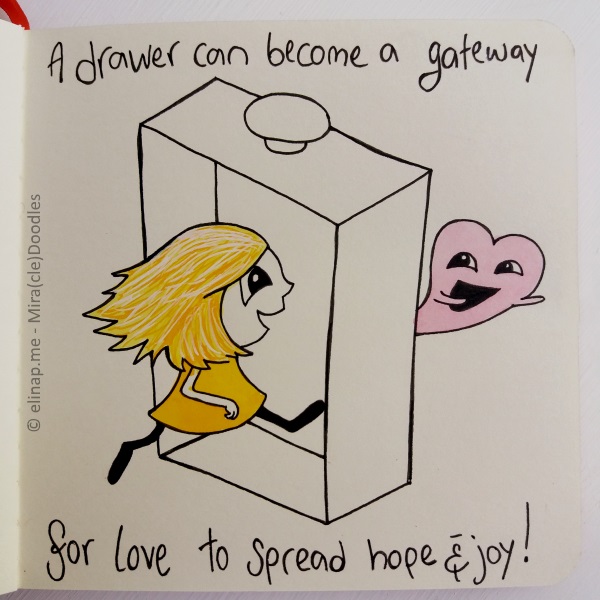 A drawer can become a gateway
for love to spread hope & joy!
© elinap.me - Mira(cle)Doodles